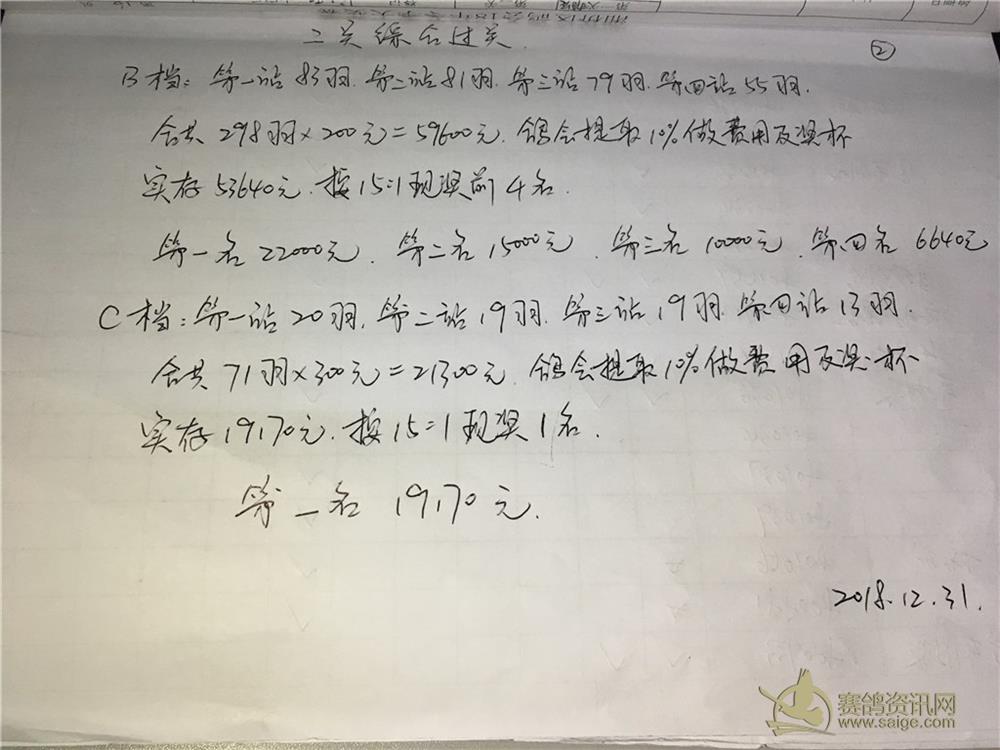 二关综合过关.
②
B档: 第一站83羽. 第二站81羽. 第三站79羽. 第四站55羽.
合共298羽×200元=59600元. 鸽会提取10%做费用及奖杯
实存53640元. 按15:1现奖前4名.
第一名22000元. 第二名15000元. 第三名10000元. 第四名6640元
C档: 第一站20羽. 第二站19羽. 第三站19羽. 第四站13羽.
合共71羽×300元=21300元. 鸽会提取10%做费用及奖杯
实存19170元. 按15:1现奖1名.
第一名 19170元.
2018.12.31.
赛鸽资讯网
www.saige.com